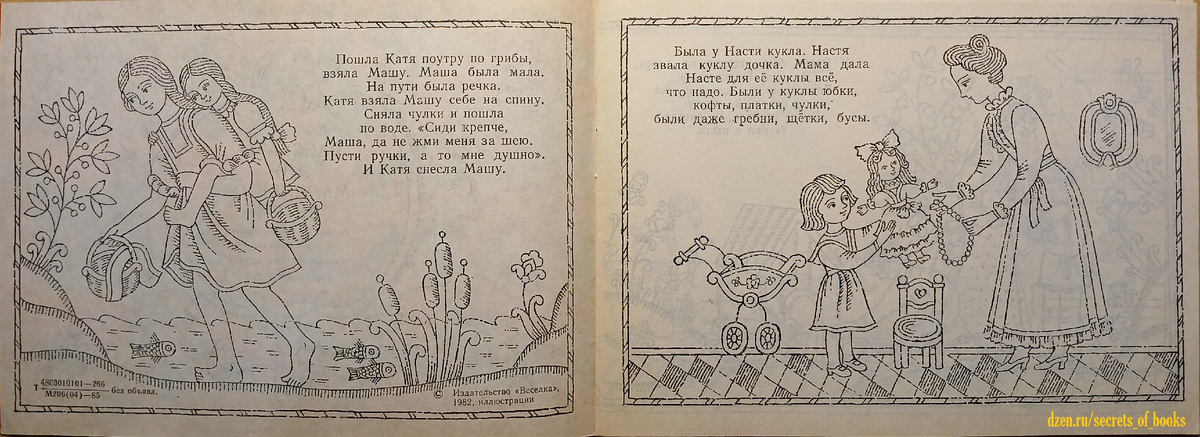 Пошла Катя поутру по грибы,
взяла Машу. Маша была мала.
На пути была речка.
Катя взяла Машу себе на спину.
Сняла чулки и пошла
по воде. «Сиди крепче,
Маша, да не жми меня за шею.
Пусти ручки, а то мне душно».
И Катя снесла Машу.
Т 4803010101—266
М206(04)—85 без объявл.
© Издательство «Веселка»,
1982, иллюстрации
Была у Насти кукла. Настя
звала куклу дочка. Мама дала
Насте для её куклы всё,
что надо. Были у куклы юбки,
кофты, платки, чулки,
были даже гребни, щётки, бусы.
dzen.ru/secrets_of_books